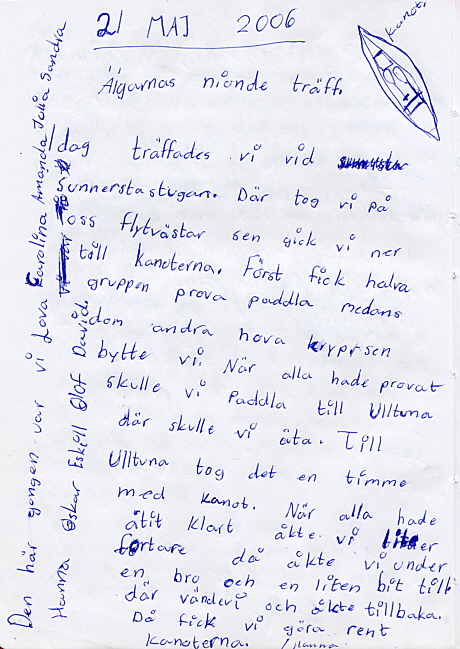 21 MAJ 2006
kanot.
Älgarnas nionde träff.
Idag träffades vi vid
Sunnerstastugan. Där tog vi på
oss flytvästar sen gick vi ner
till kanoterna. Först fick halva
gruppen prova paddla medans
dom andra hova krypr sen
bytte vi. När alla hade provat
skulle vi Paddla till Ulltuna
där skulle vi äta. Till
Ulltuna tog det en timme
med kanot. När alla hade
ätit klart åkte vi
fortare då åkte vi under
en bro och en liten bit till
där vändevi och åkte tillbaka.
Då fick vi göra rent
kanoterna. /Hanna
Den här gången var vi Lova Carolina Amanda Julia Sandra
Hanna Oskar Eskill Olof David.